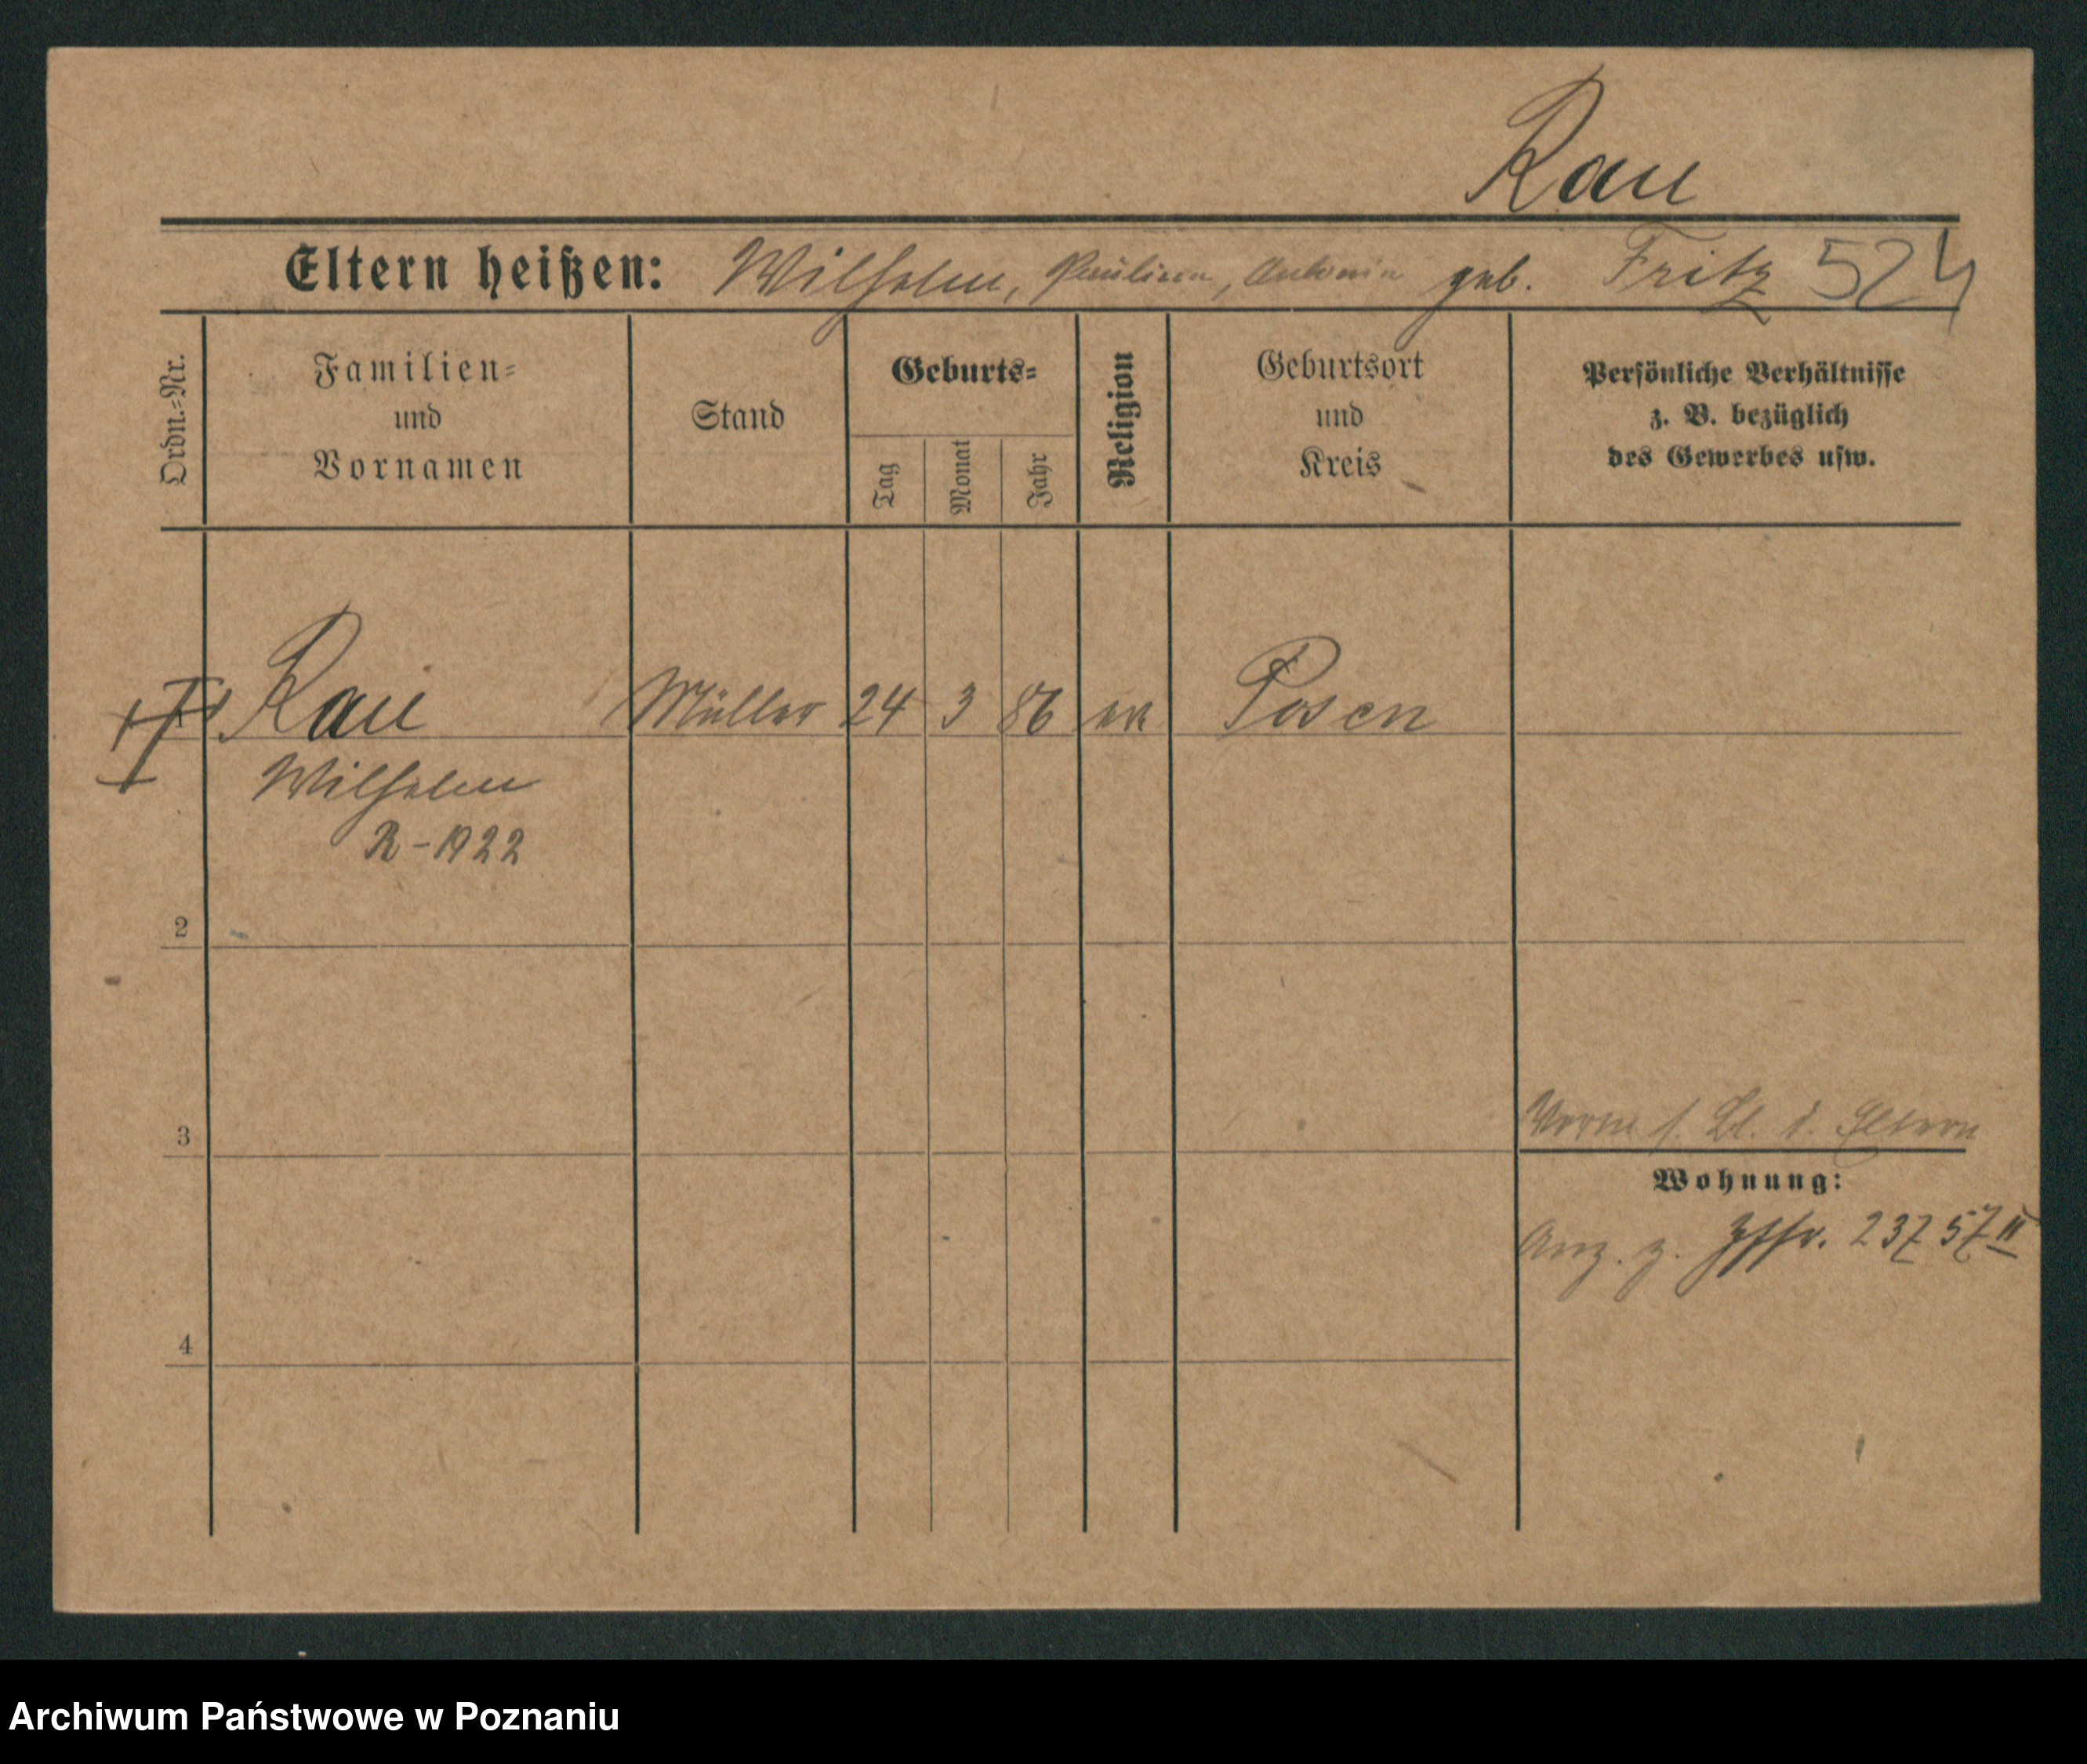 Rau
Eltern heißen: Wilhelm, Paulina, Antonin geb. Fritz 524
Ordn.-Nr.
Familien-
und
Vornamen
Stand
Geburts-
Tag
Monat
Jahr
Religion
Geburtsort
und
Kreis
Persönliche Verhältnisse
z. B. bezüglich
des Gewerbes usw.
Rau Müller 24 3 86 Posen
Wilhelm
R-1922
2
3
d. Eltern
Wohnung:
Anz. z. 23757 II
4
Archiwum Państwowe w Poznaniu